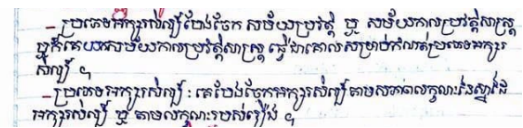 – ប្រភេទអក្សរសិល្ប៍បែងចែក សម័យប្រវត្តិ ឬ សម័យកាលប្រវត្តិសាស្ត្រ
ឬគឺគេយកសម័យកាលប្រវត្តិសាស្ត្រ ធ្វើជាគោលសម្រាប់កំណត់ប្រភេទអក្សរ
សិល្ប៍ ។
– ប្រភេទអក្សរសិល្ប៍ : គេបែងចែកអក្សរសិល្ប៍តាមសភាពលក្ខណៈនៃស្នាដៃ
អក្សរសិល្ប៍ ឬ តាមលក្ខណៈរបស់រឿង ។